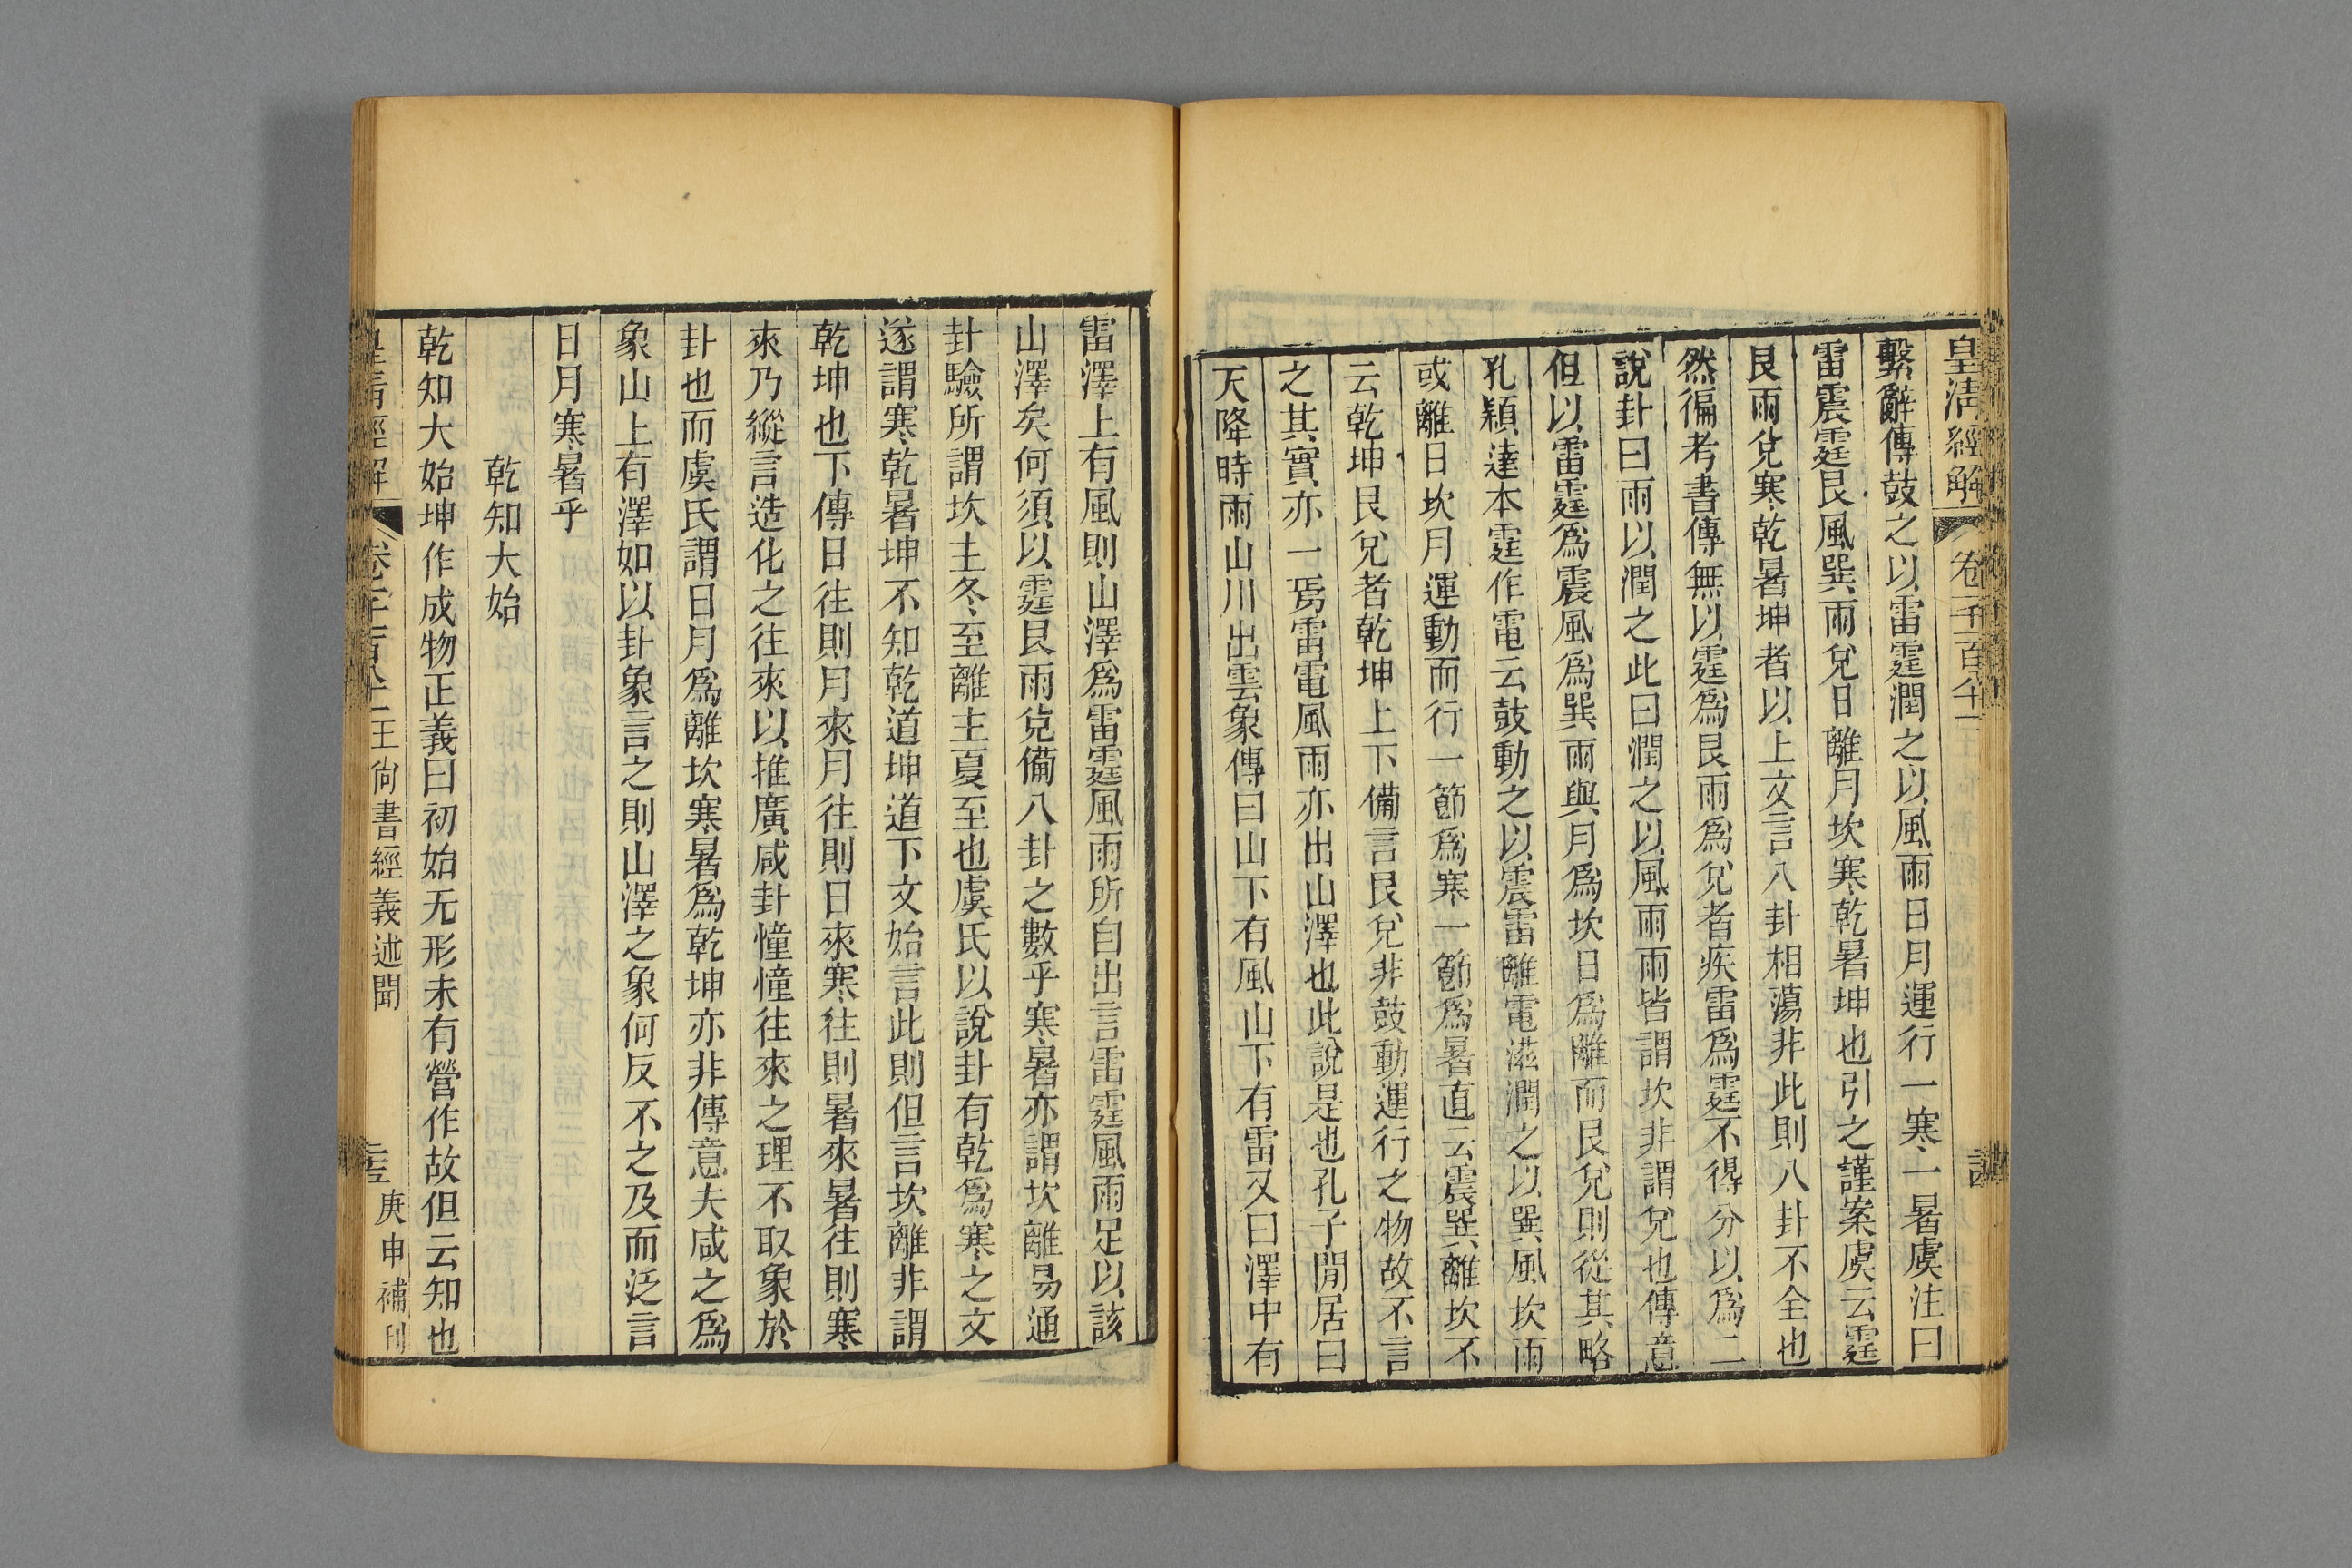 皇清經解
卷一千一百八十一
繫辭傳鼓之以雷霆潤之以風雨日月運行一寒一暑虞注曰
雷震霆艮風巽雨兌日離月坎寒乾暑坤也引之謹案虞云霆
艮雨兌寒乾暑坤者以上文言八卦相蕩非此則八卦不全也
然徧考書傳無以霆爲艮雨爲兌者疾雷爲霆不得分以爲二
說卦曰雨以潤之此曰潤之以風雨雨皆謂坎非謂兌也傳意
但以雷霆爲震風爲巽雨與月爲坎日爲離而艮兌則從其略
孔穎達本霆作電云鼓動之以震雷離電滋潤之以巽風坎雨
或離日坎月運動而行一節爲寒一節爲暑直云震巽離坎不
云乾坤艮兌者乾坤上下備言艮兌非鼓動運行之物故不言
之其實亦一焉雷電風雨亦出山澤也此說是也孔子閒居曰
天降時雨山川出雲象傳曰山下有風山下有雷又曰澤中有
雷澤上有風則山澤爲雷霆風雨所自出言雷霆風雨足以該
山澤矣何須以霆艮雨兌備八卦之數乎寒暑亦謂坎離易通
卦驗所謂坎主冬至離主夏至也虞氏以說卦有乾爲寒之文
遂謂寒乾暑坤不知乾道坤道下文始言此則但言坎離非謂
乾坤也下傳日往則月來月往則日來寒往則暑來暑往則寒
來乃縱言造化之往來以推廣咸卦憧憧往來之理不取象於
卦也而虞氏謂日月爲離坎寒暑爲乾坤亦非傳意夫咸之爲
象山上有澤如以卦象言之則山澤之象何反不之及而泛言
日月寒暑乎
乾知大始
乾知大始坤作成物正義曰初始无形未有營作故但云知也
皇清經解
卷一千一百八十一
王尚書經義述聞
庚申補刊